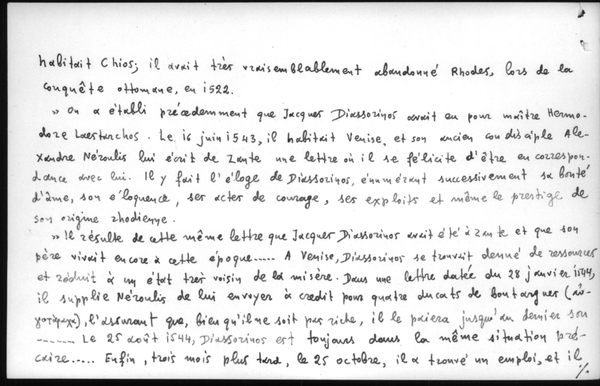 habitait Chios; il avait très vraisemblablement abandonné Rhodes, lors de la
conquête ottomane, en 1522.
» On a établi précédemment que Jacques Diassorinos avait eu pour maître Hermo-
dore Laestarchos. Le 16 juin 1543, il habitait Venise, et son ancien condisciple Ale-
xandre Néroulis lui écrit de Zante une lettre où il se félicite d'être en correspon-
dance avec lui. Il y fait l'éloge de Diassorinos, énumérant successivement sa bonté
d'âme, son éloquence, ses actes de courage, ses exploits et même le prestige de
son origine rhodienne.
» Il résulte de cette même lettre que Jacques Diassorinos avait été à Zante et que son
père vivait encore à cette époque..... A Venise, Diassorinos se trouvait dénué de ressources
et réduit à un état très voisin de la misère. Dans une lettre datée du 28 janvier 1544,
il supplie Néroulis de lui envoyer à crédit pour quatre ducats de boutargues (αὐ-
γοτάραχα), l'assurant que, bien qu'il ne soit pas riche, il le paiera jusqu'au dernier sou
....... Le 25 août 1544, Diassorinos est toujours dans la même situation pré-
caire..... Enfin, trois mois plus tard, le 25 octobre, il a trouvé un emploi, et il
%